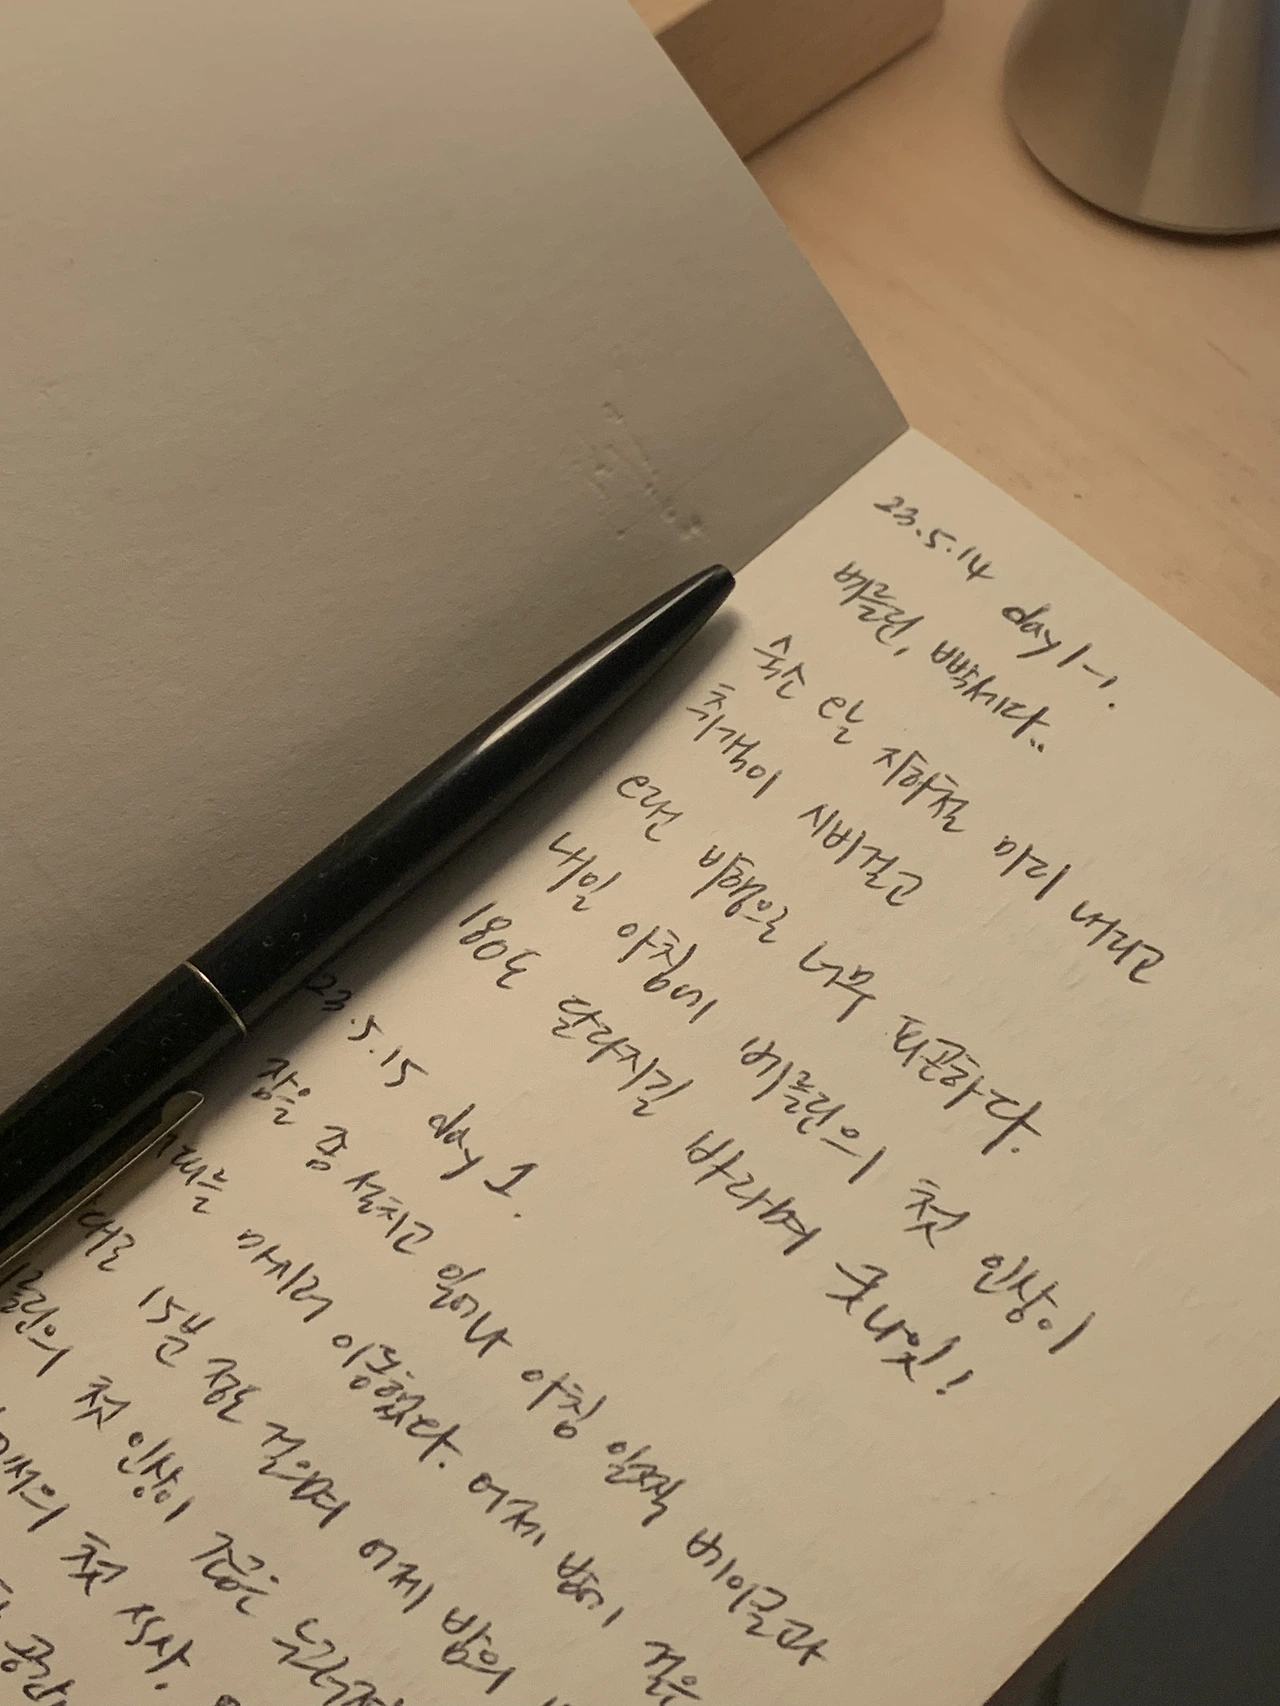 23.5.14 day 1-1.
베를린, 빡세다..
숙소 e날 지하철 미리 내리고
취객이 시비걸고
e랜 비행으로 너무 피곤하다.
내일 아침에 베를린의 첫 인상이
180도 달라지길 바라며 굿나잇!
23.5.15 day 1.
잠을 좀 설치고 일어나 아침 일찍 베이글과
커피를 마시러 이동했다. 어제 밤에 걸은
대로 15분 정도 걸으며 어제 밤의
베를린의 첫 인상이 조금은 누그러
첫 식사.